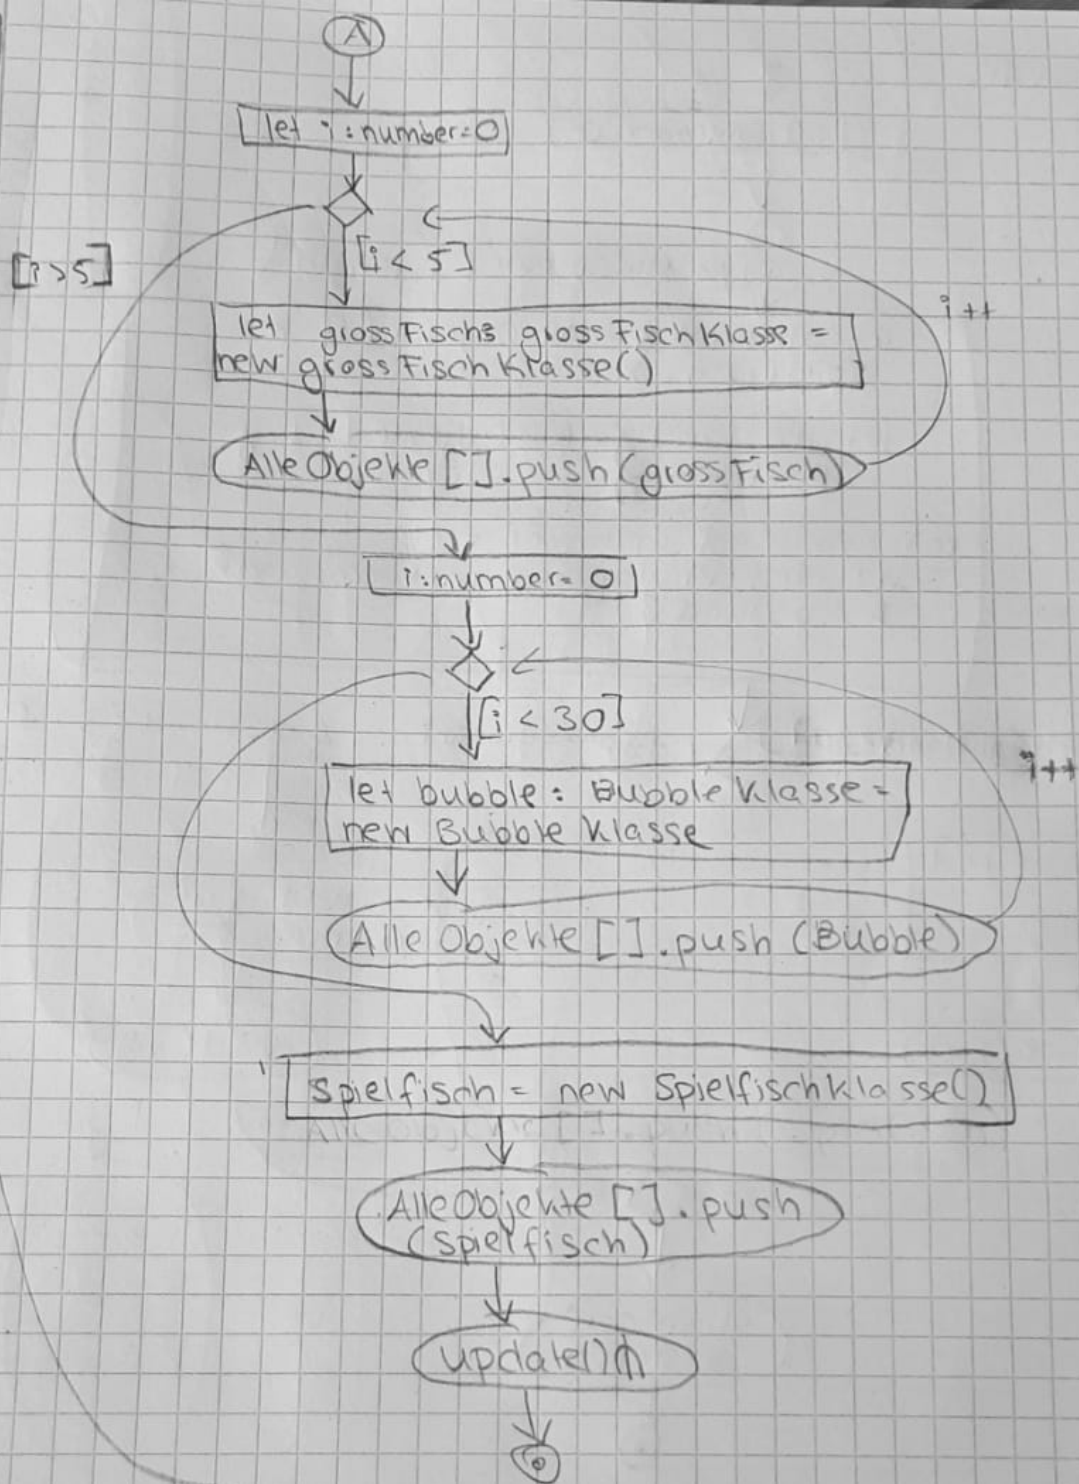 A
let i : number = 0
[i < 5]
[i > 5]
i++
let grossFisch: grossFischKlasse =
new grossFischKlasse()
AlleObjekte [].push (grossFisch)
i : number = 0
[i < 30]
i++
let bubble : BubbleKlasse =
new BubbleKlasse
AlleObjekte [].push (Bubble)
Spielfisch = new SpielfischKlasse()
AlleObjekte [].push
(Spielfisch)
update()